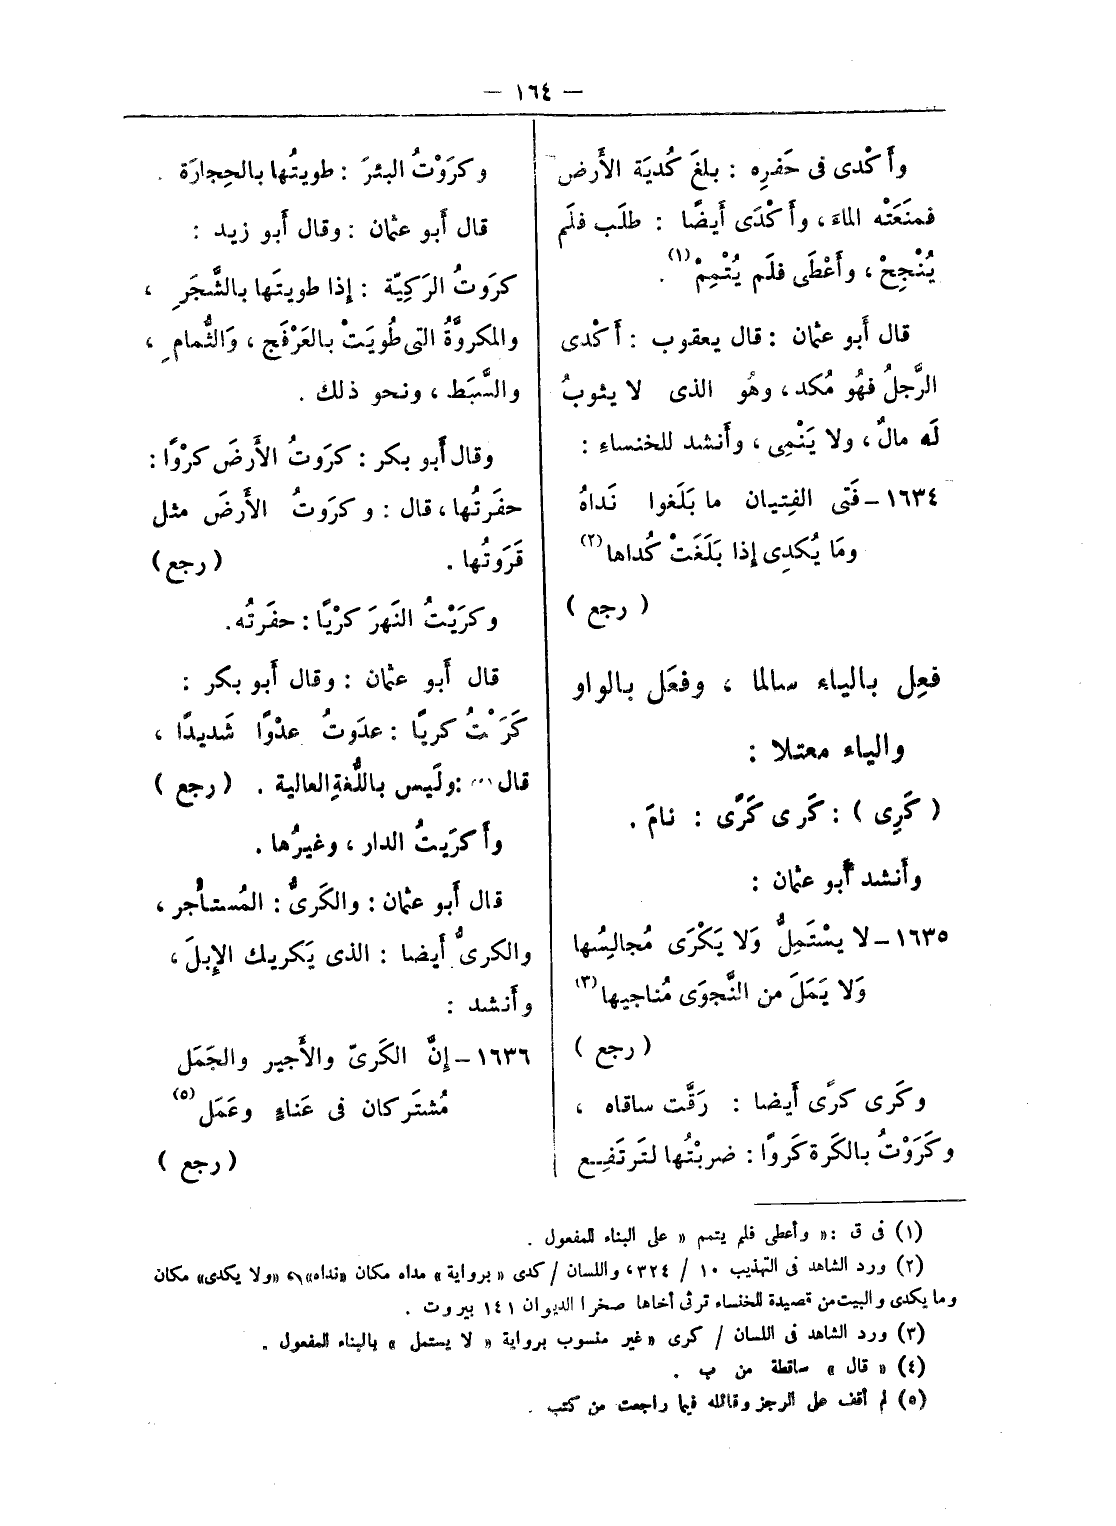 — ١٦٤ —
وأَكْدى فى حَفرِه : بلغَ كُديَة الأَرض
فمنَعَتْه الماءَ ، وأَكْدَى أَيضًا : طلَب فلَم
يُنْجِحْ ، وأَعْطَى فلَم يُتْمِمْ (١) .
قال أَبو عثمان : قال يعقوب : أَكْدى
الرَّجلُ فهُو مُكد ، وهُو الذى لا يثوبُ
لَه مالٌ ، ولا يَنْمِى ، وأَنشد للخنساءِ :
١٦٣٤ – فَتَى الفِتيان ما بَلَغوا نَداهُ
ومَا يُكدِى إذا بَلَغَتْ كُداها (٢)
( رجع )
فعِل بالياء سالما ، وفعَل بالواو
والياء معتلا :
( كَرِى ) : كَرى كَرًى : نامَ .
وأَنشد أَبو عثمان :
١٦٣٥ – لا يسْتَمِلُّ وَلا يَكْرَى مُجالِسُها
وَلا يَمَلَ من النَّجوَى مُناجيها (٣)
( رجع )
وكَرى كرًى أَيضا : رَقَّت ساقاه ،
وكَرَوْتُ بالكَرة كَروًا : ضربْتُها لتَرتَفِع
وكرَوْتُ البئرَ : طويتُها بالحِجارَة .
قال أَبو عثمان : وقال أَبو زيد :
كرَوتُ الرَكِيّة : إذا طويتَها بالشَّجَرِ ،
والمكروَّةُ التى طُويَتْ بالعَرْفَجِ ، وَالثُّمامِ ،
والسَّبَط ، ونحو ذلك .
وقال أَبو بكر : كرَوتُ الأَرضَ كرْوًا :
حفَرتُها ، قال : وكرَوتُ الأَرضَ مثل
قَرَوتُها . ( رجع )
وكرَيْتُ النَهرَ كرْيًا : حفَرتُه .
قال أَبو عثمان : وقال أَبو بكر :
كَرَيْتُ كريًا : عدَوتُ عدْوًا شَديدًا ،
قال : ولَيس باللُّغةِ العالية . ( رجع )
وأَكرَيتُ الدار ، وغيرُها .
قال أَبو عثمان : والكَرىُّ : المُستأْجر ،
والكرىُّ أَيضا : الذى يَكريك الإِبلَ ،
وأَنشد :
١٦٣٦ – إنَّ الكَرىّ والأَجير والجَمَل
مُشتَركان فى عَناءٍ وعَمَل (٥)
( رجع )
(١) فى ق : « وأعطى فلم يتمم » على البناء للمفعول .
(٢) ورد الشاهد فى التهذيب ١٠ / ٣٢٤ ، واللسان / كدى « برواية » مداه مكان «نداه» و «ولا يكدى» مكان
وما يكدى والبيت من قصيدة للخنساء ترثى أخاها صخرا الديوان ١٤١ بيروت .
(٣) ورد الشاهد فى اللسان / كرى « غير منسوب برواية « لا يستمل » بالبناء للمفعول .
(٤) « قال » ساقطة من ب .
(٥) لم أقف على الرجز وقائله فيما راجعت من كتب .